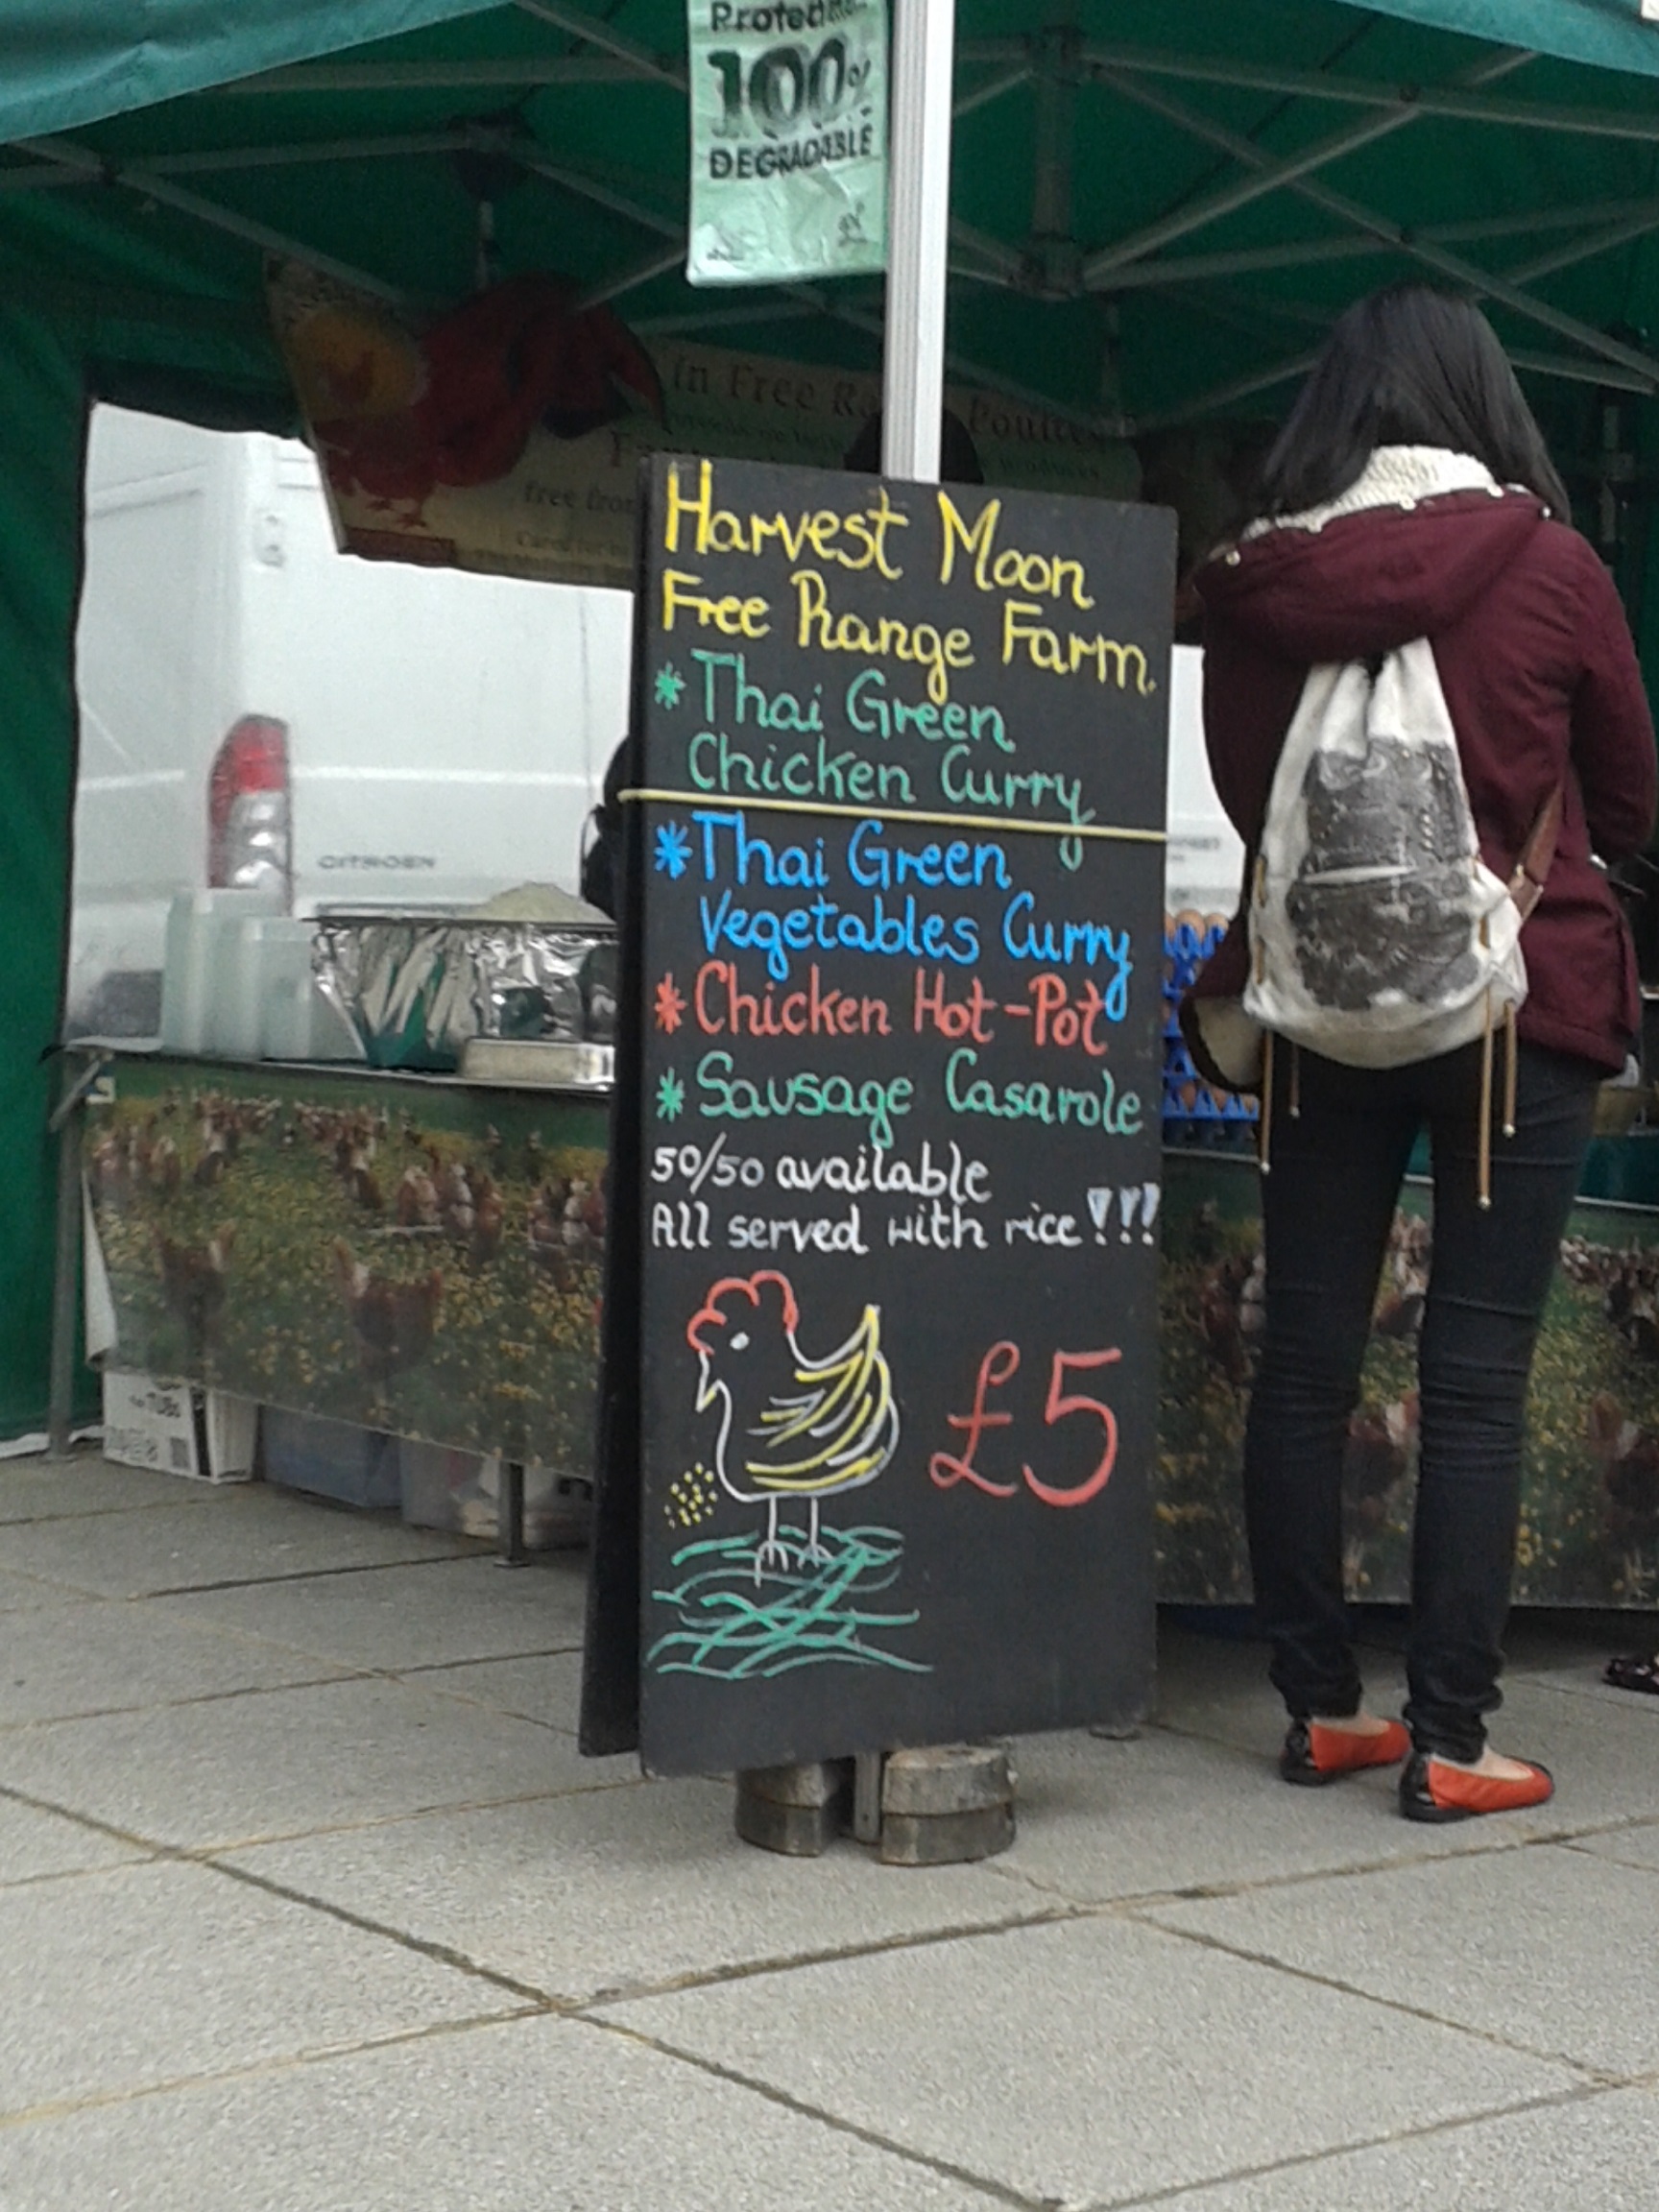 100%
DEGRADABLE
in Free
Poultry
free from
Harvest Moon
Free Range Farm.
*Thai Green
Chicken Curry
*Thai Green
Vegetables Curry
*Chicken Hot-Pot
*Sausage Casarole
50/50 available
All served with rice!!!
£5
CITROEN